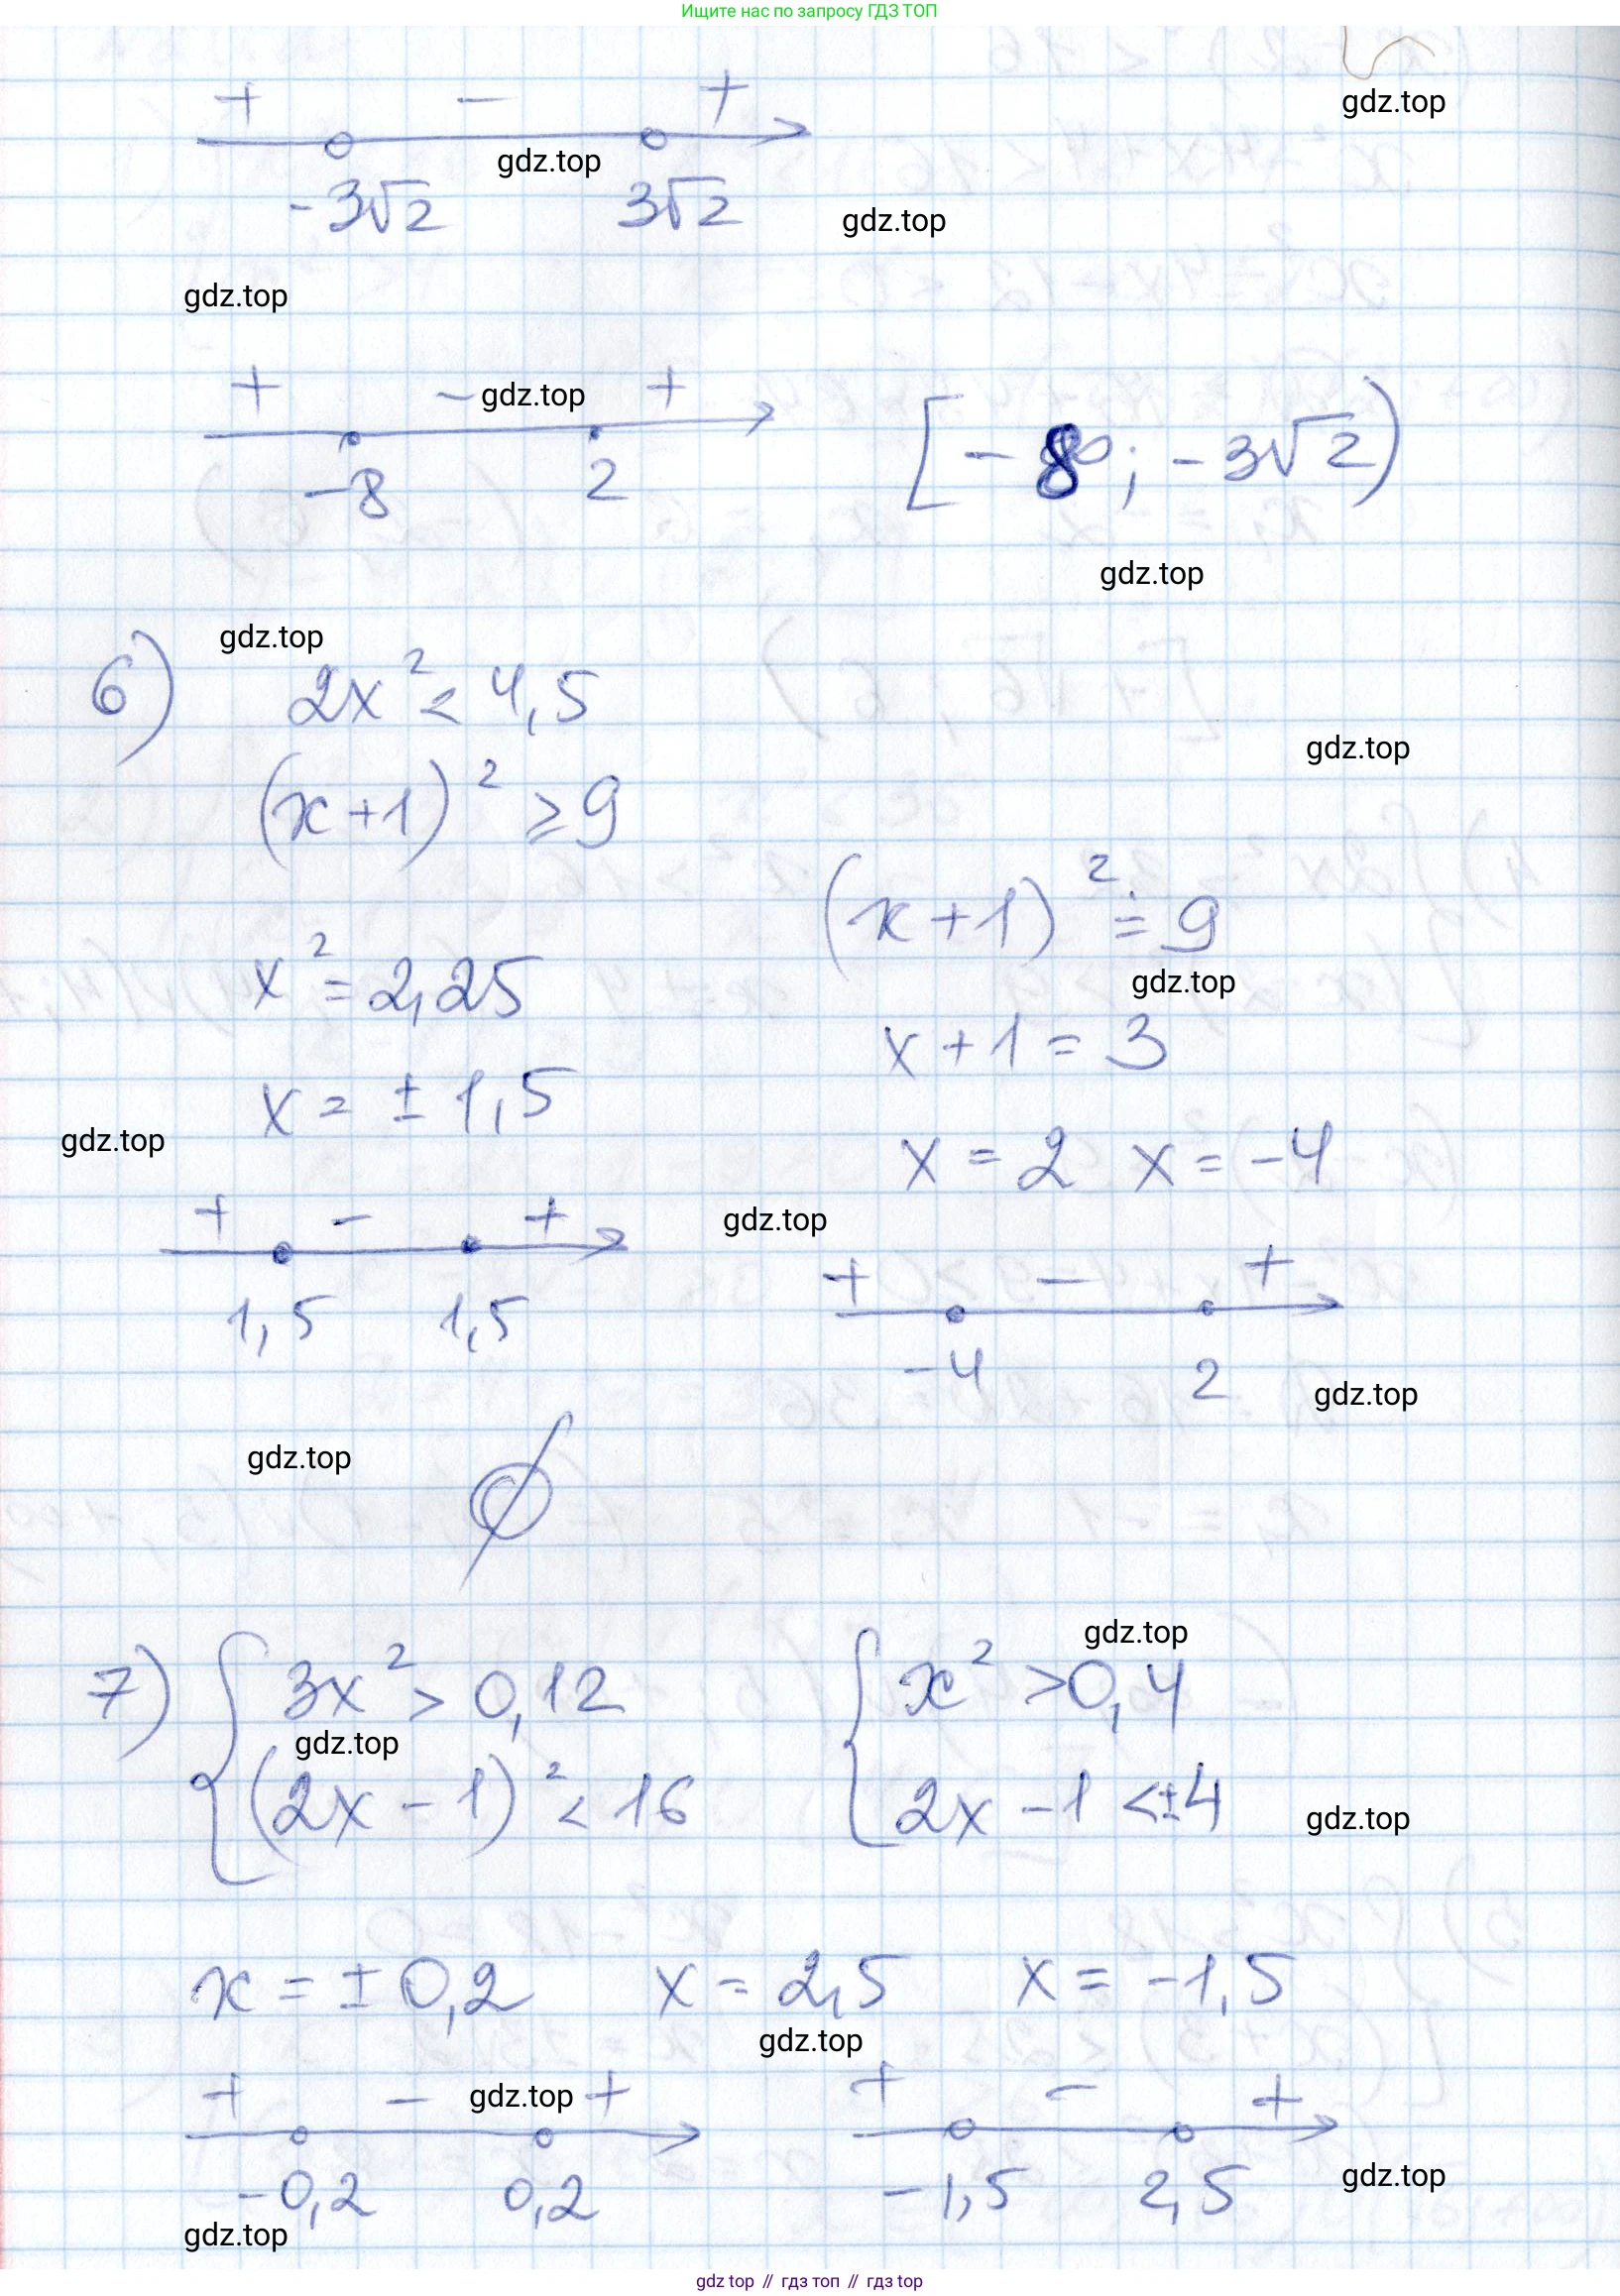 Ищите нас по запросу ГДЗ ТОП
gdz.top
+ − +
gdz.top
-3√2 3√2
gdz.top
gdz.top
+ − gdz.top +
-8 2
[-8; -3√2)
gdz.top
gdz.top
6) 2x² < 4,5
gdz.top
(x+1)² ≥ 9
(x+1)² = 9
x² = 2,25
gdz.top
x+1 = 3
x = ± 1,5
gdz.top
x = 2 x = -4
+ − +
gdz.top
+ − +
1,5 1,5
-4 2
gdz.top
gdz.top
∅
gdz.top
7) { 3x² > 0,12 { x² > 0,4
gdz.top
(2x - 1)² < 16 2x - 1 < ±4
gdz.top
x = ± 0,2 x = 2,5 x = -1,5
gdz.top
+ − gdz.top + + − +
-0,2 0,2 -1,5 2,5
gdz.top
gdz.top
gdz top // гдз топ // гдз top